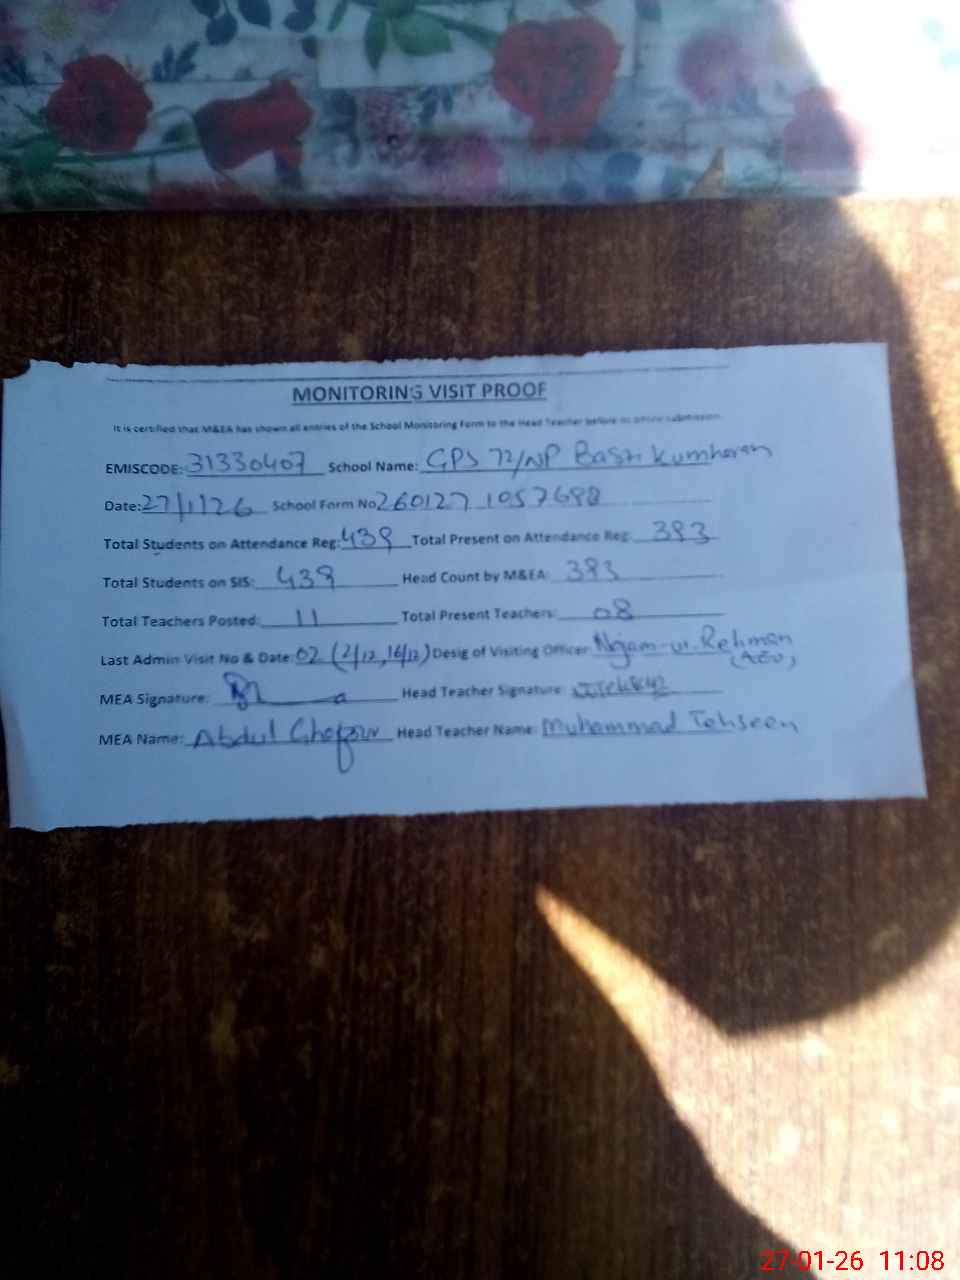 MONITORING VISIT PROOF
It is certified that M&EA has shown all entries of the School Monitoring Form to the Head Teacher before its online submission.
EMISCODE: 31330407 School Name: GPS 72/NP Basti Kumharan
Date: 27/1/26 School Form No 260127 1057698
Total Students on Attendance Reg: 439 Total Present on Attendance Reg: 393
Total Students on SIS: 439 Head Count by M&EA: 393
Total Teachers Posted: 11 Total Present Teachers: 08
Last Admin Visit No & Date: 02 (2/12, 16/12) Desig of Visiting Officer: Najam-ur-Rehman
(AEO)
MEA Signature: Head Teacher Signature:
MEA Name: Abdul Ghafour Head Teacher Name: Muhammad Tehseen
27-01-26 11:08